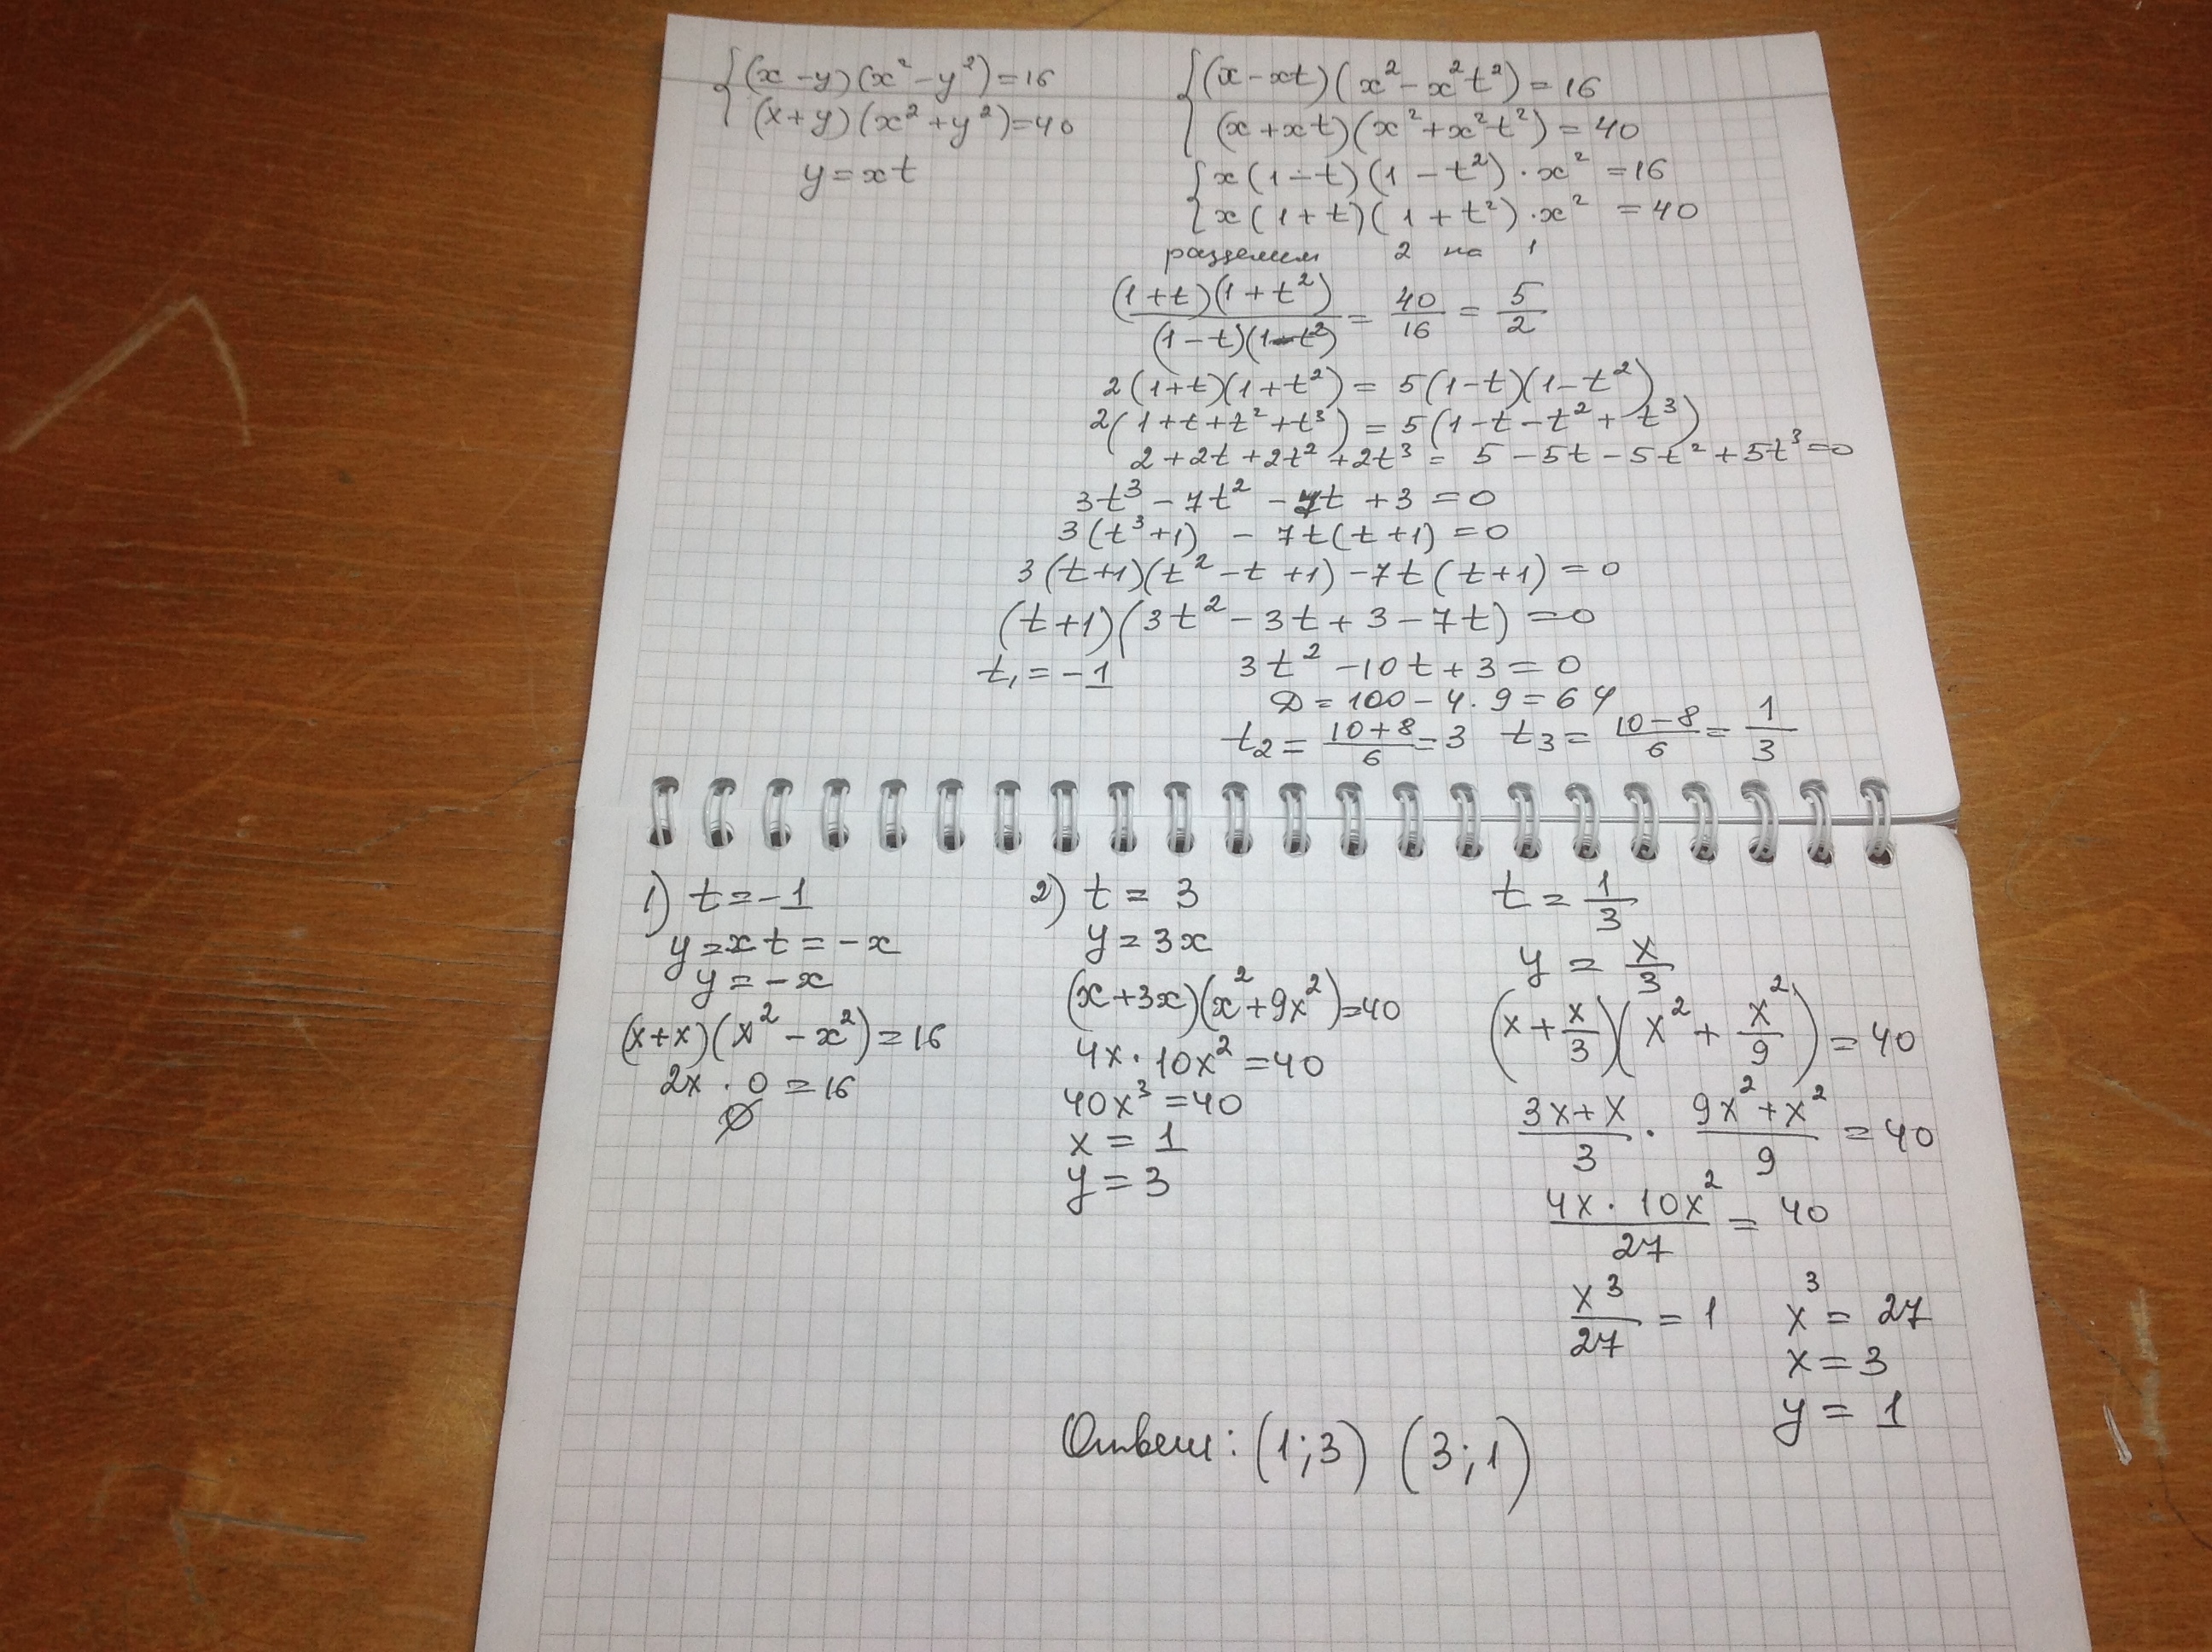 {(x-y)(x²-y²)=16
(x+y)(x²+y²)=40
y=xt
{(x-xt)(x²-x²t²)=16
(x+xt)(x²+x²t²)=40
{x(1-t)(1-t²)·x²=16
x(1+t)(1+t²)·x²=40
разделим 2 на 1
(1+t)(1+t²)/(1-t)(1-t²) = 40/16 = 5/2
2(1+t)(1+t²)=5(1-t)(1-t²)
2(1+t+t²+t³)=5(1-t-t²+t³)
2+2t+2t²+2t³=5-5t-5t²+5t³=0
3t³-7t²-7t+3=0
3(t³+1)-7t(t+1)=0
3(t+1)(t²-t+1)-7t(t+1)=0
(t+1)(3t²-3t+3-7t)=0
t₁=-1 3t²-10t+3=0
D=100-4·9=64
t₂=(10+8)/6=3 t₃=(10-8)/6=1/3
1) t=-1
y=xt=-x
y=-x
(x+x)(x²-x²)=16
2x·0=16
∅
2) t=3
y=3x
(x+3x)(x²+9x²)=40
4x·10x²=40
40x³=40
x=1
y=3
t=1/3
y=x/3
(x+x/3)(x²+x²/9)=40
(3x+x)/3·(9x²+x²)/9=40
4x·10x²/27=40
x³/27=1 x³=27
x=3
y=1
Ответ: (1;3) (3;1)